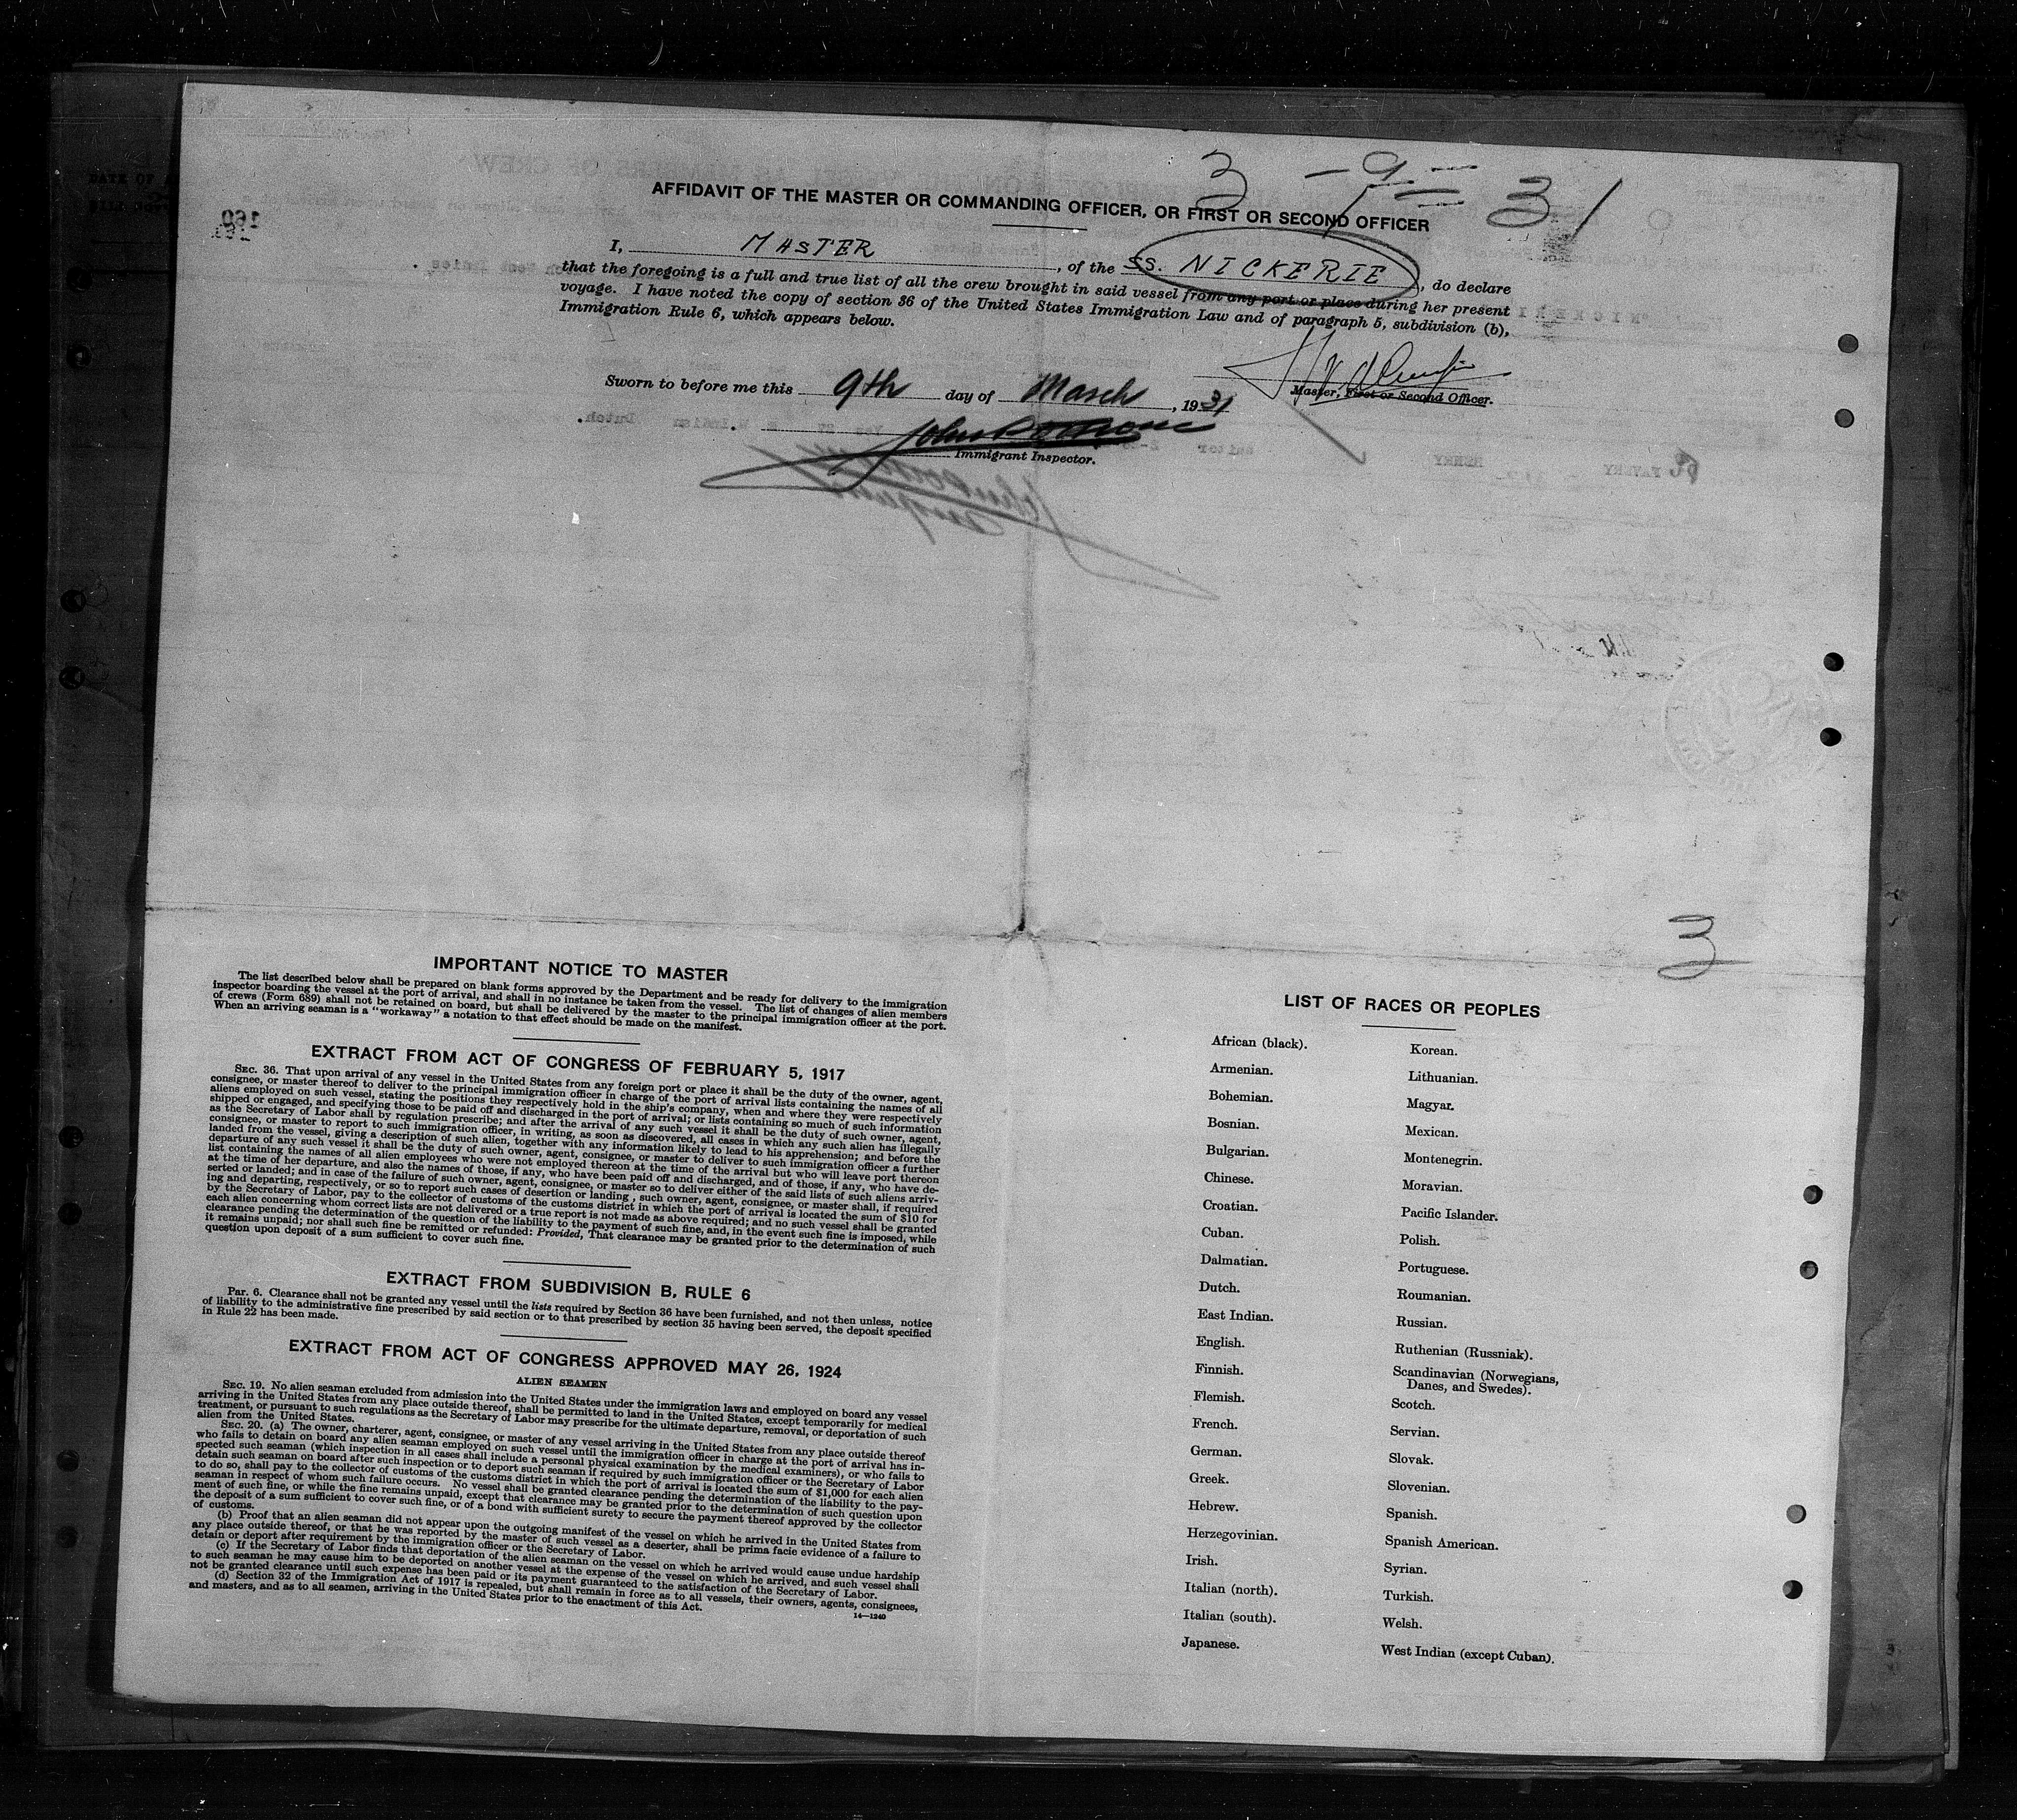 3-9-31
AFFIDAVIT OF THE MASTER OR COMMANDING OFFICER, OR FIRST OR SECOND OFFICER
I, MASTER, of the SS. NICKERIE, do declare
that the foregoing is a full and true list of all the crew brought in said vessel from any port or place during her present
voyage. I have noted the copy of section 36 of the United States Immigration Law and of paragraph 5, subdivision (b),
Immigration Rule 6, which appears below.
Master, First or Second Officer.
Sworn to before me this 9th day of March, 1931
Immigrant Inspector.
3
IMPORTANT NOTICE TO MASTER
The list described below shall be prepared on blank forms approved by the Department and be ready for delivery to the immigration
inspector boarding the vessel at the port of arrival, and shall in no instance be taken from the vessel. The list of changes of alien members
of crews (Form 689) shall not be retained on board, but shall be delivered by the master to the principal immigration officer at the port.
When an arriving seaman is a "workaway" a notation to that effect should be made on the manifest.
EXTRACT FROM ACT OF CONGRESS OF FEBRUARY 5, 1917
SEC. 36. That upon arrival of any vessel in the United States from any foreign port or place it shall be the duty of the owner, agent,
consignee, or master thereof to deliver to the principal immigration officer in charge of the port of arrival lists containing the names of all
aliens employed on such vessel, stating the positions they respectively hold in the ship's company, when and where they were respectively
shipped or engaged, and specifying those to be paid off and discharged in the port of arrival; or lists containing so much of such information
as the Secretary of Labor shall by regulation prescribe; and after the arrival of any such vessel it shall be the duty of such owner, agent,
consignee, or master to report to such immigration officer, in writing, as soon as discovered, all cases in which any such alien has illegally
landed from the vessel, giving a description of such alien, together with any information likely to lead to his apprehension; and before the
departure of any such vessel it shall be the duty of such owner, agent, consignee, or master to deliver to such immigration officer a further
list containing the names of all alien employees who were not employed thereon at the time of the arrival but who will leave port thereon
at the time of her departure, and also the names of those, if any, who have been paid off and discharged, and of those, if any, who have de-
serted or landed; and in case of the failure of such owner, agent, consignee, or master so to deliver either of the said lists of such aliens arriv-
ing and departing, respectively, or so to report such cases of desertion or landing, such owner, agent, consignee, or master shall, if required
by the Secretary of Labor, pay to the collector of customs of the customs district in which the port of arrival is located the sum of $10 for
each alien concerning whom correct lists are not delivered or a true report is not made as above required; and no such vessel shall be granted
clearance pending the determination of the question of the liability to the payment of such fine, and, in the event such fine is imposed, while
it remains unpaid; nor shall such fine be remitted or refunded: Provided, That clearance may be granted prior to the determination of such
question upon deposit of a sum sufficient to cover such fine.
EXTRACT FROM SUBDIVISION B, RULE 6
PAR. 6. Clearance shall not be granted any vessel until the lists required by Section 36 have been furnished, and not then unless, notice
of liability to the administrative fine prescribed by said section or to that prescribed by section 35 having been served, the deposit specified
in Rule 22 has been made.
EXTRACT FROM ACT OF CONGRESS APPROVED MAY 26, 1924
ALIEN SEAMEN
SEC. 19. No alien seaman excluded from admission into the United States under the immigration laws and employed on board any vessel
arriving in the United States from any place outside thereof, shall be permitted to land in the United States, except temporarily for medical
treatment, or pursuant to such regulations as the Secretary of Labor may prescribe for the ultimate departure, removal, or deportation of such
alien from the United States.
SEC. 20. (a) The owner, charterer, agent, consignee, or master of any vessel arriving in the United States from any place outside thereof
who fails to detain on board any alien seaman employed on such vessel until the immigration officer in charge at the port of arrival has in-
spected such seaman (which inspection in all cases shall include a personal physical examination by the medical examiners), or who fails to
detain such seaman on board after such inspection or to deport such seaman if required by such immigration officer or the Secretary of Labor
to do so, shall pay to the collector of customs of the customs district in which the port of arrival is located the sum of $1,000 for each alien
seaman in respect of whom such failure occurs. No vessel shall be granted clearance pending the determination of the liability to the pay-
ment of such fine, or while the fine remains unpaid, except that clearance may be granted prior to the determination of such question upon
the deposit of a sum sufficient to cover such fine, or of a bond with sufficient surety to secure the payment thereof approved by the collector
of customs.
(b) Proof that an alien seaman did not appear upon the outgoing manifest of the vessel on which he arrived in the United States from
any place outside thereof, or that he was reported by the master of such vessel as a deserter, shall be prima facie evidence of a failure to
detain or deport after requirement by the immigration officer or the Secretary of Labor.
(c) If the Secretary of Labor finds that deportation of the alien seaman on the vessel on which he arrived would cause undue hardship
to such seaman he may cause him to be deported on another vessel at the expense of the vessel on which he arrived, and such vessel shall
not be granted clearance until such expense has been paid or its payment guaranteed to the satisfaction of the Secretary of Labor.
(d) Section 32 of the Immigration Act of 1917 is repealed, but shall remain in force as to all vessels, their owners, agents, consignees,
and masters, and as to all seamen, arriving in the United States prior to the enactment of this Act.
14—1240
LIST OF RACES OR PEOPLES
African (black).
Armenian.
Bohemian.
Bosnian.
Bulgarian.
Chinese.
Croatian.
Cuban.
Dalmatian.
Dutch.
East Indian.
English.
Finnish.
Flemish.
French.
German.
Greek.
Hebrew.
Herzegovinian.
Irish.
Italian (north).
Italian (south).
Japanese.
Korean.
Lithuanian.
Magyar.
Mexican.
Montenegrin.
Moravian.
Pacific Islander.
Polish.
Portuguese.
Roumanian.
Russian.
Ruthenian (Russniak).
Scandinavian (Norwegians,
Danes, and Swedes).
Scotch.
Servian.
Slovak.
Slovenian.
Spanish.
Spanish American.
Syrian.
Turkish.
Welsh.
West Indian (except Cuban).